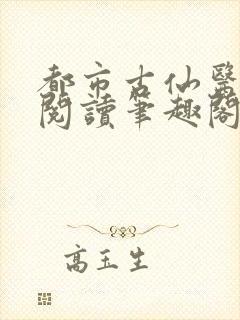 都市古仙醫
閱讀筆趣閣
高玉生